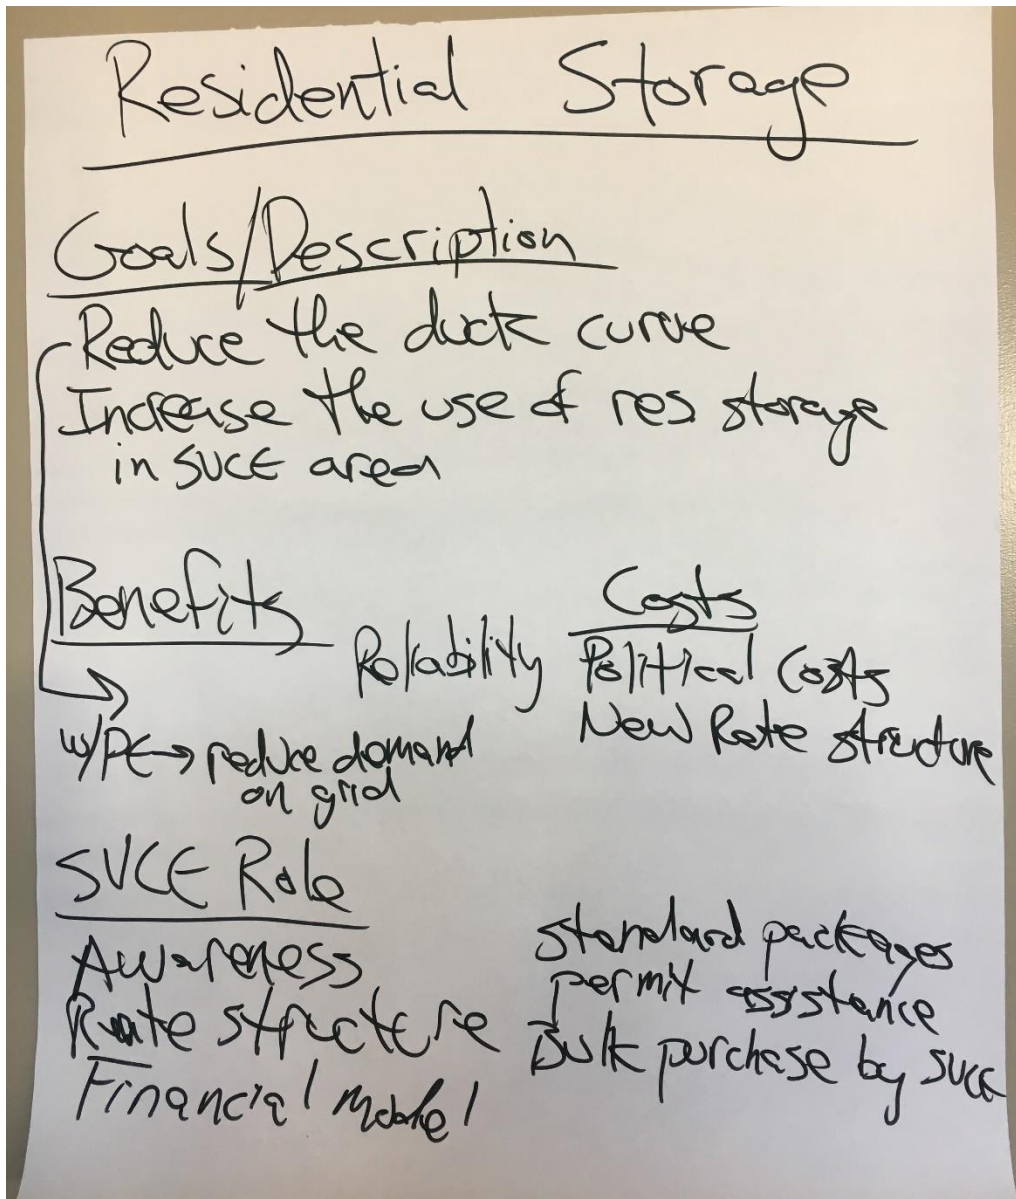 Residential Storage
Goals/Description
Reduce the duck curve
Increase the use of res storage
in SVCE area
Benefits
Reliability
w/PE → reduce demand
on grid
Costs
Political Costs
New Rate structure
SVCE Role
Awareness
Rate structure
Financial model
Standard packages
permit assistance
Bulk purchase by SVCE